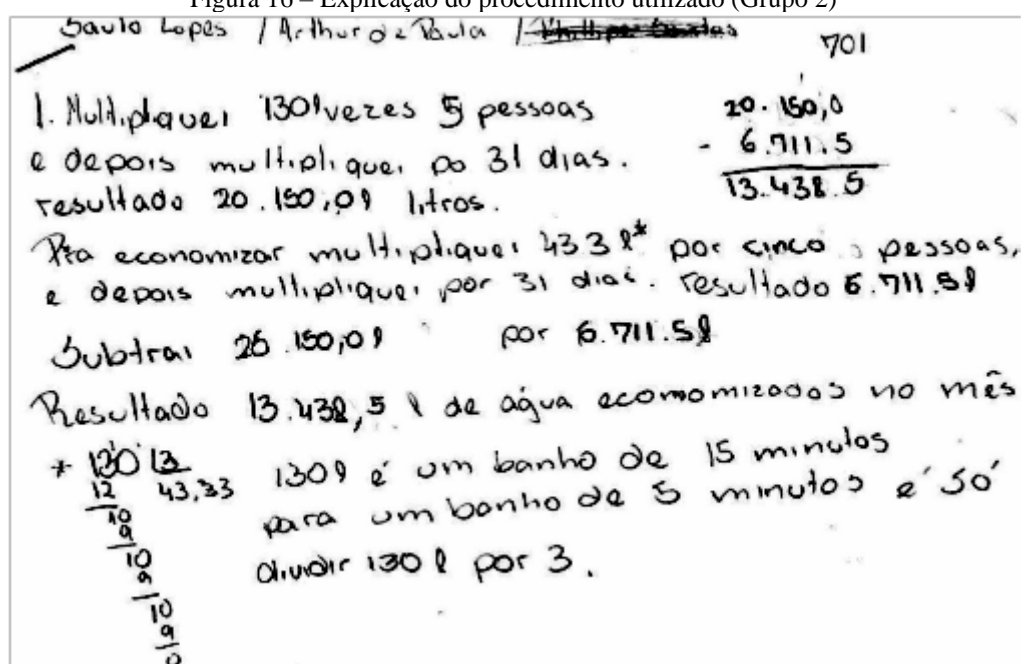 Figura 16 – Explicação do procedimento utilizado (Grupo 2)
Saulo Lopes / Arthur de Paula /
701
1. Multipliquei 130l vezes 5 pessoas
e depois multipliquei po 31 dias.
resultado 20.150,0l litros.
20.150,0
- 6.711.5
13.438.5
Pra economizar multipliquei 433l* por cinco pessoas,
e depois multipliquei por 31 dias. resultado 6.711.5l
Subtrai 20.150,0l por 6.711.5l
Resultado 13.438,5 l de água economizados no mês
* 130 3
12 43,33
10
9
10
9
10
9
130l é um banho de 15 minutos
para um banho de 5 minutos é só
dividir 130 l por 3.